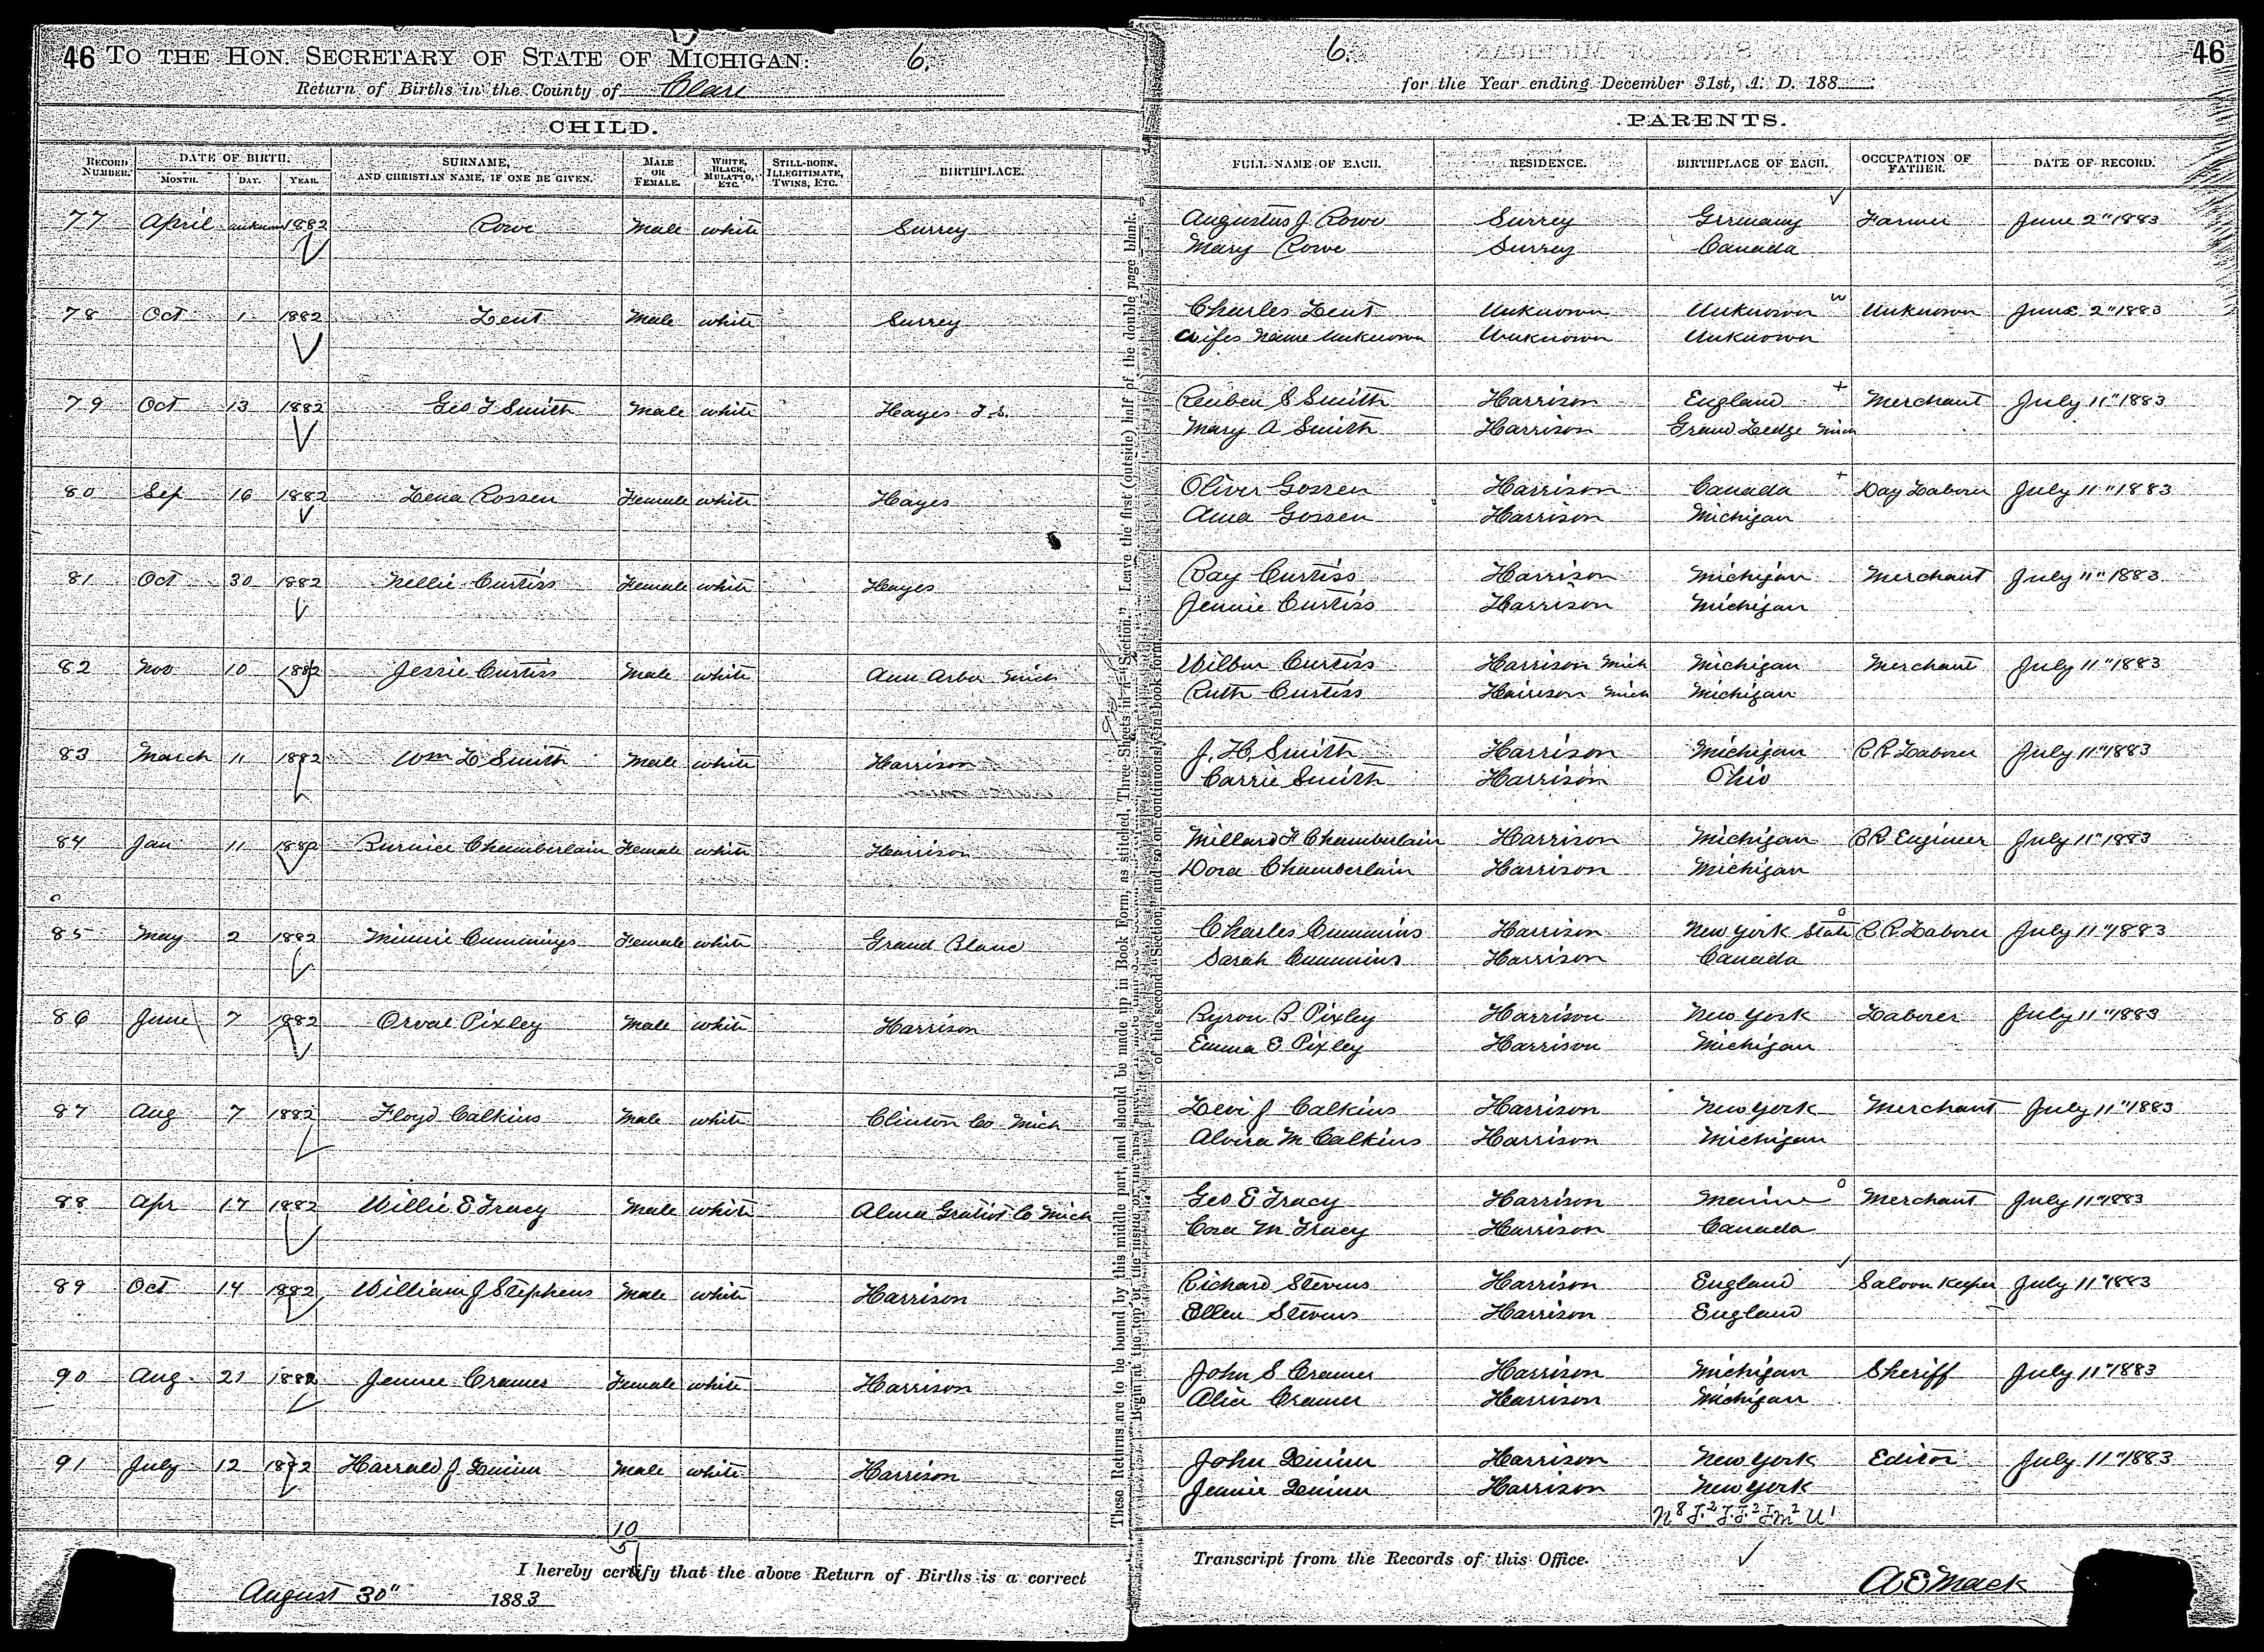 46 TO THE HON. SECRETARY OF STATE OF MICHIGAN: 6.
Return of Births in the County of Clare
CHILD.
RECORD NUMBER. DATE OF BIRTH. MONTH. DAY. YEAR. SURNAME, AND CHRISTIAN NAME, IF ONE BE GIVEN. MALE OR FEMALE. WHITE, BLACK, MULATTO, ETC. STILL-BORN, ILLEGITIMATE, TWINS, ETC. BIRTHPLACE.
77 April unknown 1882 Rowe Male white Surrey
78 Oct 1 1882 Lent Male white Surrey
79 Oct 13 1882 Geo T Smith Male white Hayes T.S.
80 Sep 16 1882 Lena Rossen Female white Hayes
81 Oct 30 1882 Nellie Curtiss Female white Hayes
82 Nov 10 1882 Jessie Curtiss Male white Ann Arbor Mich
83 March 11 1882 Wm L Smith Male white Harrison
84 Jan 11 1882 Burnice Chamberlain Female white Harrison
85 May 2 1882 Minnie Cummings Female white Grand Blanc
86 June 7 1882 Orval Pixley Male white Harrison
87 Aug 7 1882 Floyd Calkins Male white Clinton Co Mich
88 Apr 17 1882 Willie E Tracy Male white Alma Gratiot Co Mich
89 Oct 14 1882 William J Stephens Male white Harrison
90 Aug. 21 1882 Jennie Cramer Female white Harrison
91 July 12 1882 Harrald J Male white Harrison
10
5
I hereby certify that the above Return of Births is a correct
August 30" 1883
These Returns are to be bound by this middle part, and should be made up in Book Form, as stitched, Three Sheets in a "Section." Leave the first (outside) half of the double page blank.
of the second "Section," and so on continuously in book form.
6. 46
for the Year ending December 31st, A. D. 188
PARENTS.
FULL NAME OF EACH. RESIDENCE. BIRTHPLACE OF EACH. OCCUPATION OF FATHER. DATE OF RECORD.
Augustus J Rowe Surrey Germany Farmer June 2" 1883
Mary Rowe Surrey Canada
Charles Lent Unknown Unknown Unknown June 2" 1883
Wifes Name Unknown Unknown Unknown
Reuben S Smith Harrison England Merchant July 11" 1883
Mary A Smith Harrison Grand Ledge Mich
Oliver Gossen Harrison Canada Day Laborer July 11" 1883
Anna Gossen Harrison Michigan
Ray Curtiss Harrison Michigan Merchant July 11" 1883
Jennie Curtiss Harrison Michigan
Wilbur Curtiss Harrison Mich Michigan Merchant July 11" 1883
Ruth Curtiss Harrison Mich Michigan
J. H. Smith Harrison Michigan R R Laborer July 11" 1883
Carrie Smith Harrison Ohio
Millard F Chamberlain Harrison Michigan R R Engineer July 11" 1883
Dora Chamberlain Harrison Michigan
Charles Cummins Harrison New York State R. R. Laborer July 11" 1883
Sarah Cummins Harrison Canada
Byron B Pixley Harrison New York Laborer July 11" 1883
Emma E Pixley Harrison Michigan
Levi J Calkins Harrison New York Merchant July 11" 1883
Alvira M Calkins Harrison Michigan
Geo E Tracy Harrison Maine Merchant July 11" 1883
Cora M Tracy Harrison Canada
Richard Stevens Harrison England Saloon Keeper July 11" 1883
Ellen Stevens Harrison England
John S Cramer Harrison Michigan Sheriff July 11" 1883
Alice Cramer Harrison Michigan
John Harrison New York Editor July 11" 1883
Jennie Harrison New York
Transcript from the Records of this Office.
A E Mack